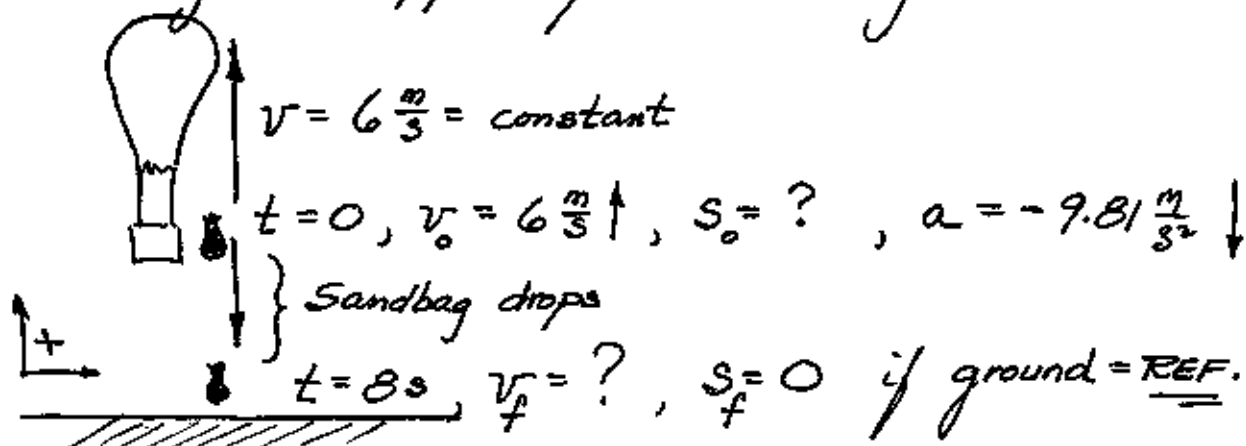 v = 6 m/s = constant
t = 0, v₀ = 6 m/s ↑, s₀ = ?, a = -9.81 m/s² ↓
} Sandbag drops
+
t = 8s, v_f = ?, s_f = 0 if ground = REF.